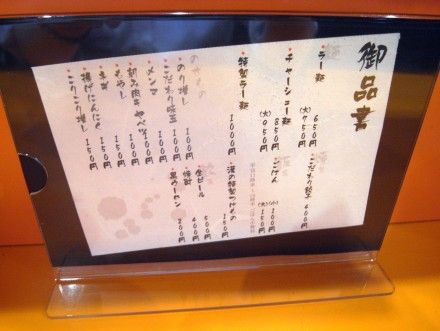 御品書
ラー麺 650円
(大) 750円
チャーシュー麺 850円
(大) 950円
特製ラー麺 1000円
のり増し 100円
こだわり味玉 100円
メンマ 150円
刻み肉キャベツ 150円
もやし 150円
ネギ 150円
揚げにんにく 150円
こりこり増し 150円
こだわり餃子 400円
ごはん (小) 100円
(大) 150円
漢の特製つけもの 150円
生ビール 500円
焼酎 400円
黒ウーロン 200円